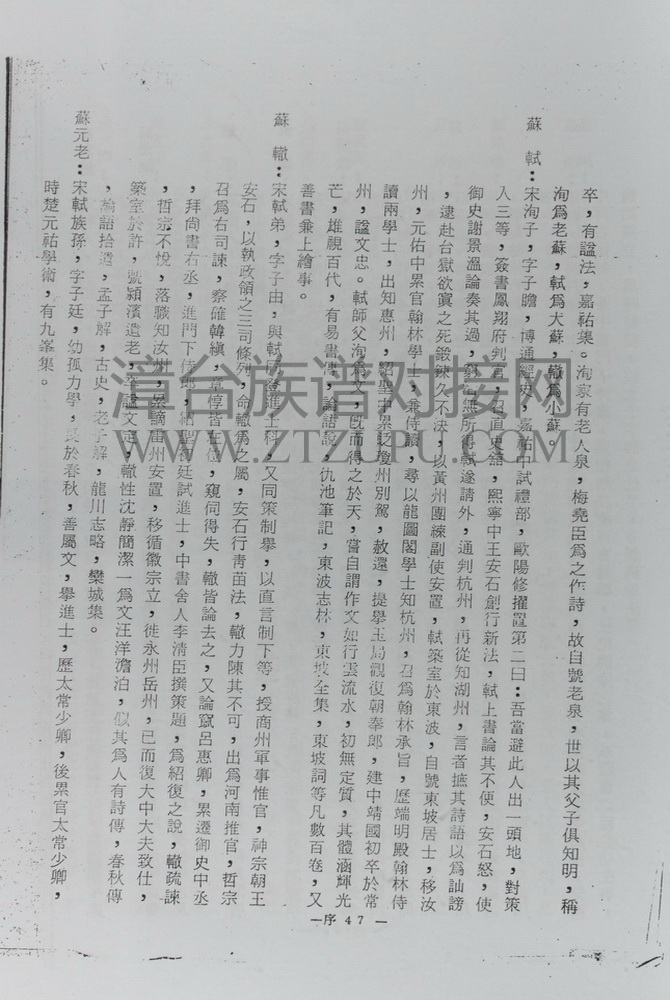 卒，有諡法，嘉祐集。洵家有老人泉，梅堯臣爲之作詩，故自號老泉，世以其父子俱知明，稱
洵爲老蘇，軾爲大蘇，轍爲小蘇。
蘇　軾：宋洵子，字子瞻，博通經史，嘉祐中試禮部，歐陽修擢置第二曰：吾當避此人出一頭地，對策
入三等，簽書鳳翔府判官，召直史館，熙寧中王安石創行新法，軾上書論其不便，安石怒，使
御史謝景溫論奏其過，窮治無所得軾遂請外，通判杭州，再從知湖州，言者摭其詩語以爲訕謗
，逮赴台獄欲寘之死鍛鍊久不決，以黃州團練副使安置，軾築室於東坡，自號東坡居士，移汝
州，元佑中累官翰林學士，兼侍讀，尋以龍圖閣學士知杭州，召爲翰林承旨，歷端明殿翰林侍
讀兩學士，出知惠州，紹聖中累貶瓊州別駕，赦還，提舉玉局觀復朝奉郎，建中靖國初卒於常
州，諡文忠。軾師父洵爲文，既而得之於天，嘗自謂作文如行雲流水，初無定質，其體涵輝光
芒，雄視百代，有易書傳，論語說，仇池筆記，東坡志林，東坡全集，東坡詞等凡數百卷，又
善書兼上繪事。
蘇　轍：宋軾弟，字子由，與軾同登進士科，又同策制擧，以直言制下等，授商州軍事惟官，神宗朝王
安石，以執政領之三司條列，命轍爲之屬，安石行靑苗法，轍力陳其不可，出爲河南推官，哲宗
召爲右司諫，察確韓縝，章惇皆在位，窺伺得失，轍皆論去之，又論竄呂惠卿，累遷御史中丞
，拜尚書右丞，進門下侍郎，紹聖初廷試進士，中書舍人李清臣撰策題，爲紹復之說，轍疏諫
，哲宗不悅，落職知汝州，累謫雷州安置，移循徽宗立，徙永州岳州，已而復大中大夫致仕，
築室於許，號潁濱遺老，卒諡文定，轍性沈靜簡潔一爲文汪洋澹泊，似其爲人有詩傳，春秋傳
，論語拾遺，孟子解，古史，老子解，龍川志略，欒城集。
蘇元老：宋軾族孫，字子廷，幼孤力學，長於春秋，善屬文，擧進士，歷太常少卿，後累官太常少卿，
時楚元祐學術，有九峯集。
—序 47—
漳台族谱对接网
WWW.ZTZUPU.COM